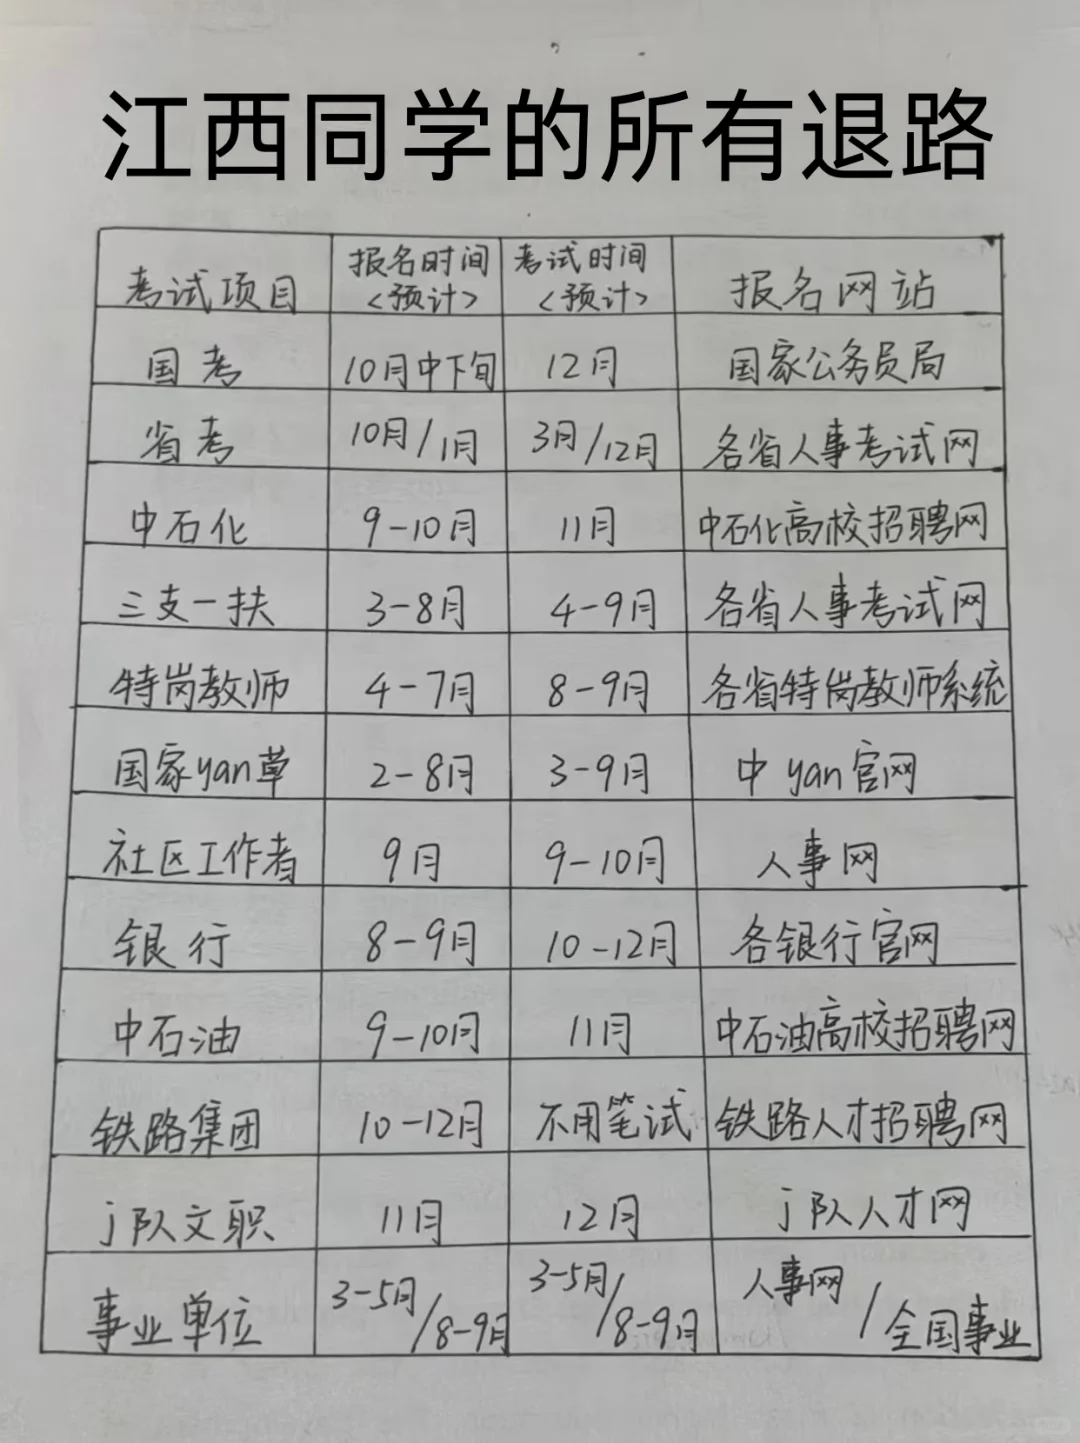 江西同学的所有退路
考试项目 报名时间<预计> 考试时间<预计> 报名网站
国考 10月中下旬 12月 国家公务员局
省考 10月/1月 3月/12月 各省人事考试网
中石化 9-10月 11月 中石化高校招聘网
三支一扶 3-8月 4-9月 各省人事考试网
特岗教师 4-7月 8-9月 各省特岗教师系统
国家yan草 2-8月 3-9月 中yan官网
社区工作者 9月 9-10月 人事网
银行 8-9月 10-12月 各银行官网
中石油 9-10月 11月 中石油高校招聘网
铁路集团 10-12月 不用笔试 铁路人才招聘网
j队文职 11月 12月 j队人才网
事业单位 3-5月/8-9月 3-5月/8-9月 人事网/全国事业